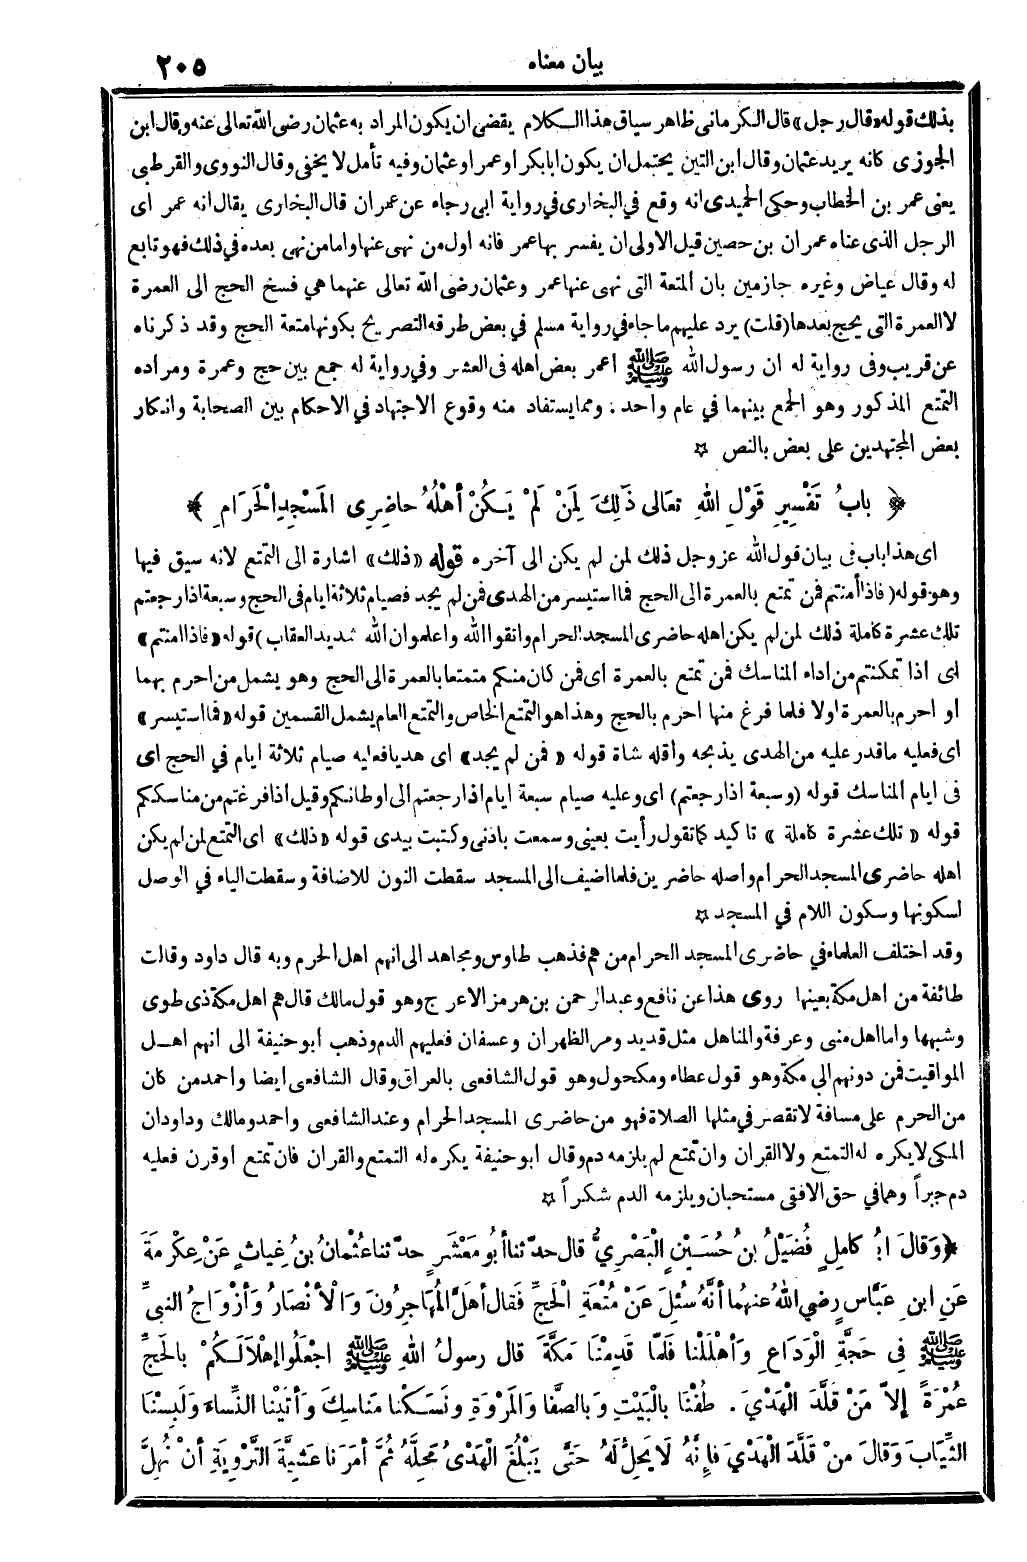 بيان معناه
٢٠٥
بذلك قوله «قال رجل» قال الكرماني ظاهر سياق هذا الكلام يقضي ان يكون المراد به عثمان رضى الله تعالى عنه وقال ابن
الجوزى كانه يريد عثمان وقال ابن التين يحتمل ان يكون ابا بكر او عمر او عثمان وفيه تأمل لا يخفى وقال النووى والقرطبى
يعنى عمر بن الخطاب وحكى الحميدى انه وقع في البخارى في رواية ابى رجاء عن عمران قال البخارى يقال انه عمر اى
الرجل الذى عناه عمران بن حصين قيل الاولى ان يفسر بها عمر فانه اول من نهى عنها واما من نهى بعده في ذلك فهو تابع
له وقال عياض وغيره جازمين بان المتعة التى نهى عنها عمر وعثمان رضى الله تعالى عنهما هي فسخ الحج الى العمرة
لا العمرة التى يحج بعدها (قلت) يرد عليهم ما جاء في رواية مسلم في بعض طرقه التصريح بكونها متعة الحج وقد ذكرناه
عن قريب وفى رواية له ان رسول الله ﷺ اعمر بعض اهله فى العشر وفي رواية له جمع بين حج وعمرة ومراده
التمتع المذكور وهو الجمع بينهما في عام واحد . ومما يستفاد منه وقوع الاجتهاد في الاحكام بين الصحابة وانكار
بعض المجتهدين على بعض بالنص ☆
﴿ بابُ تَفْسِيرِ قَوْلِ اللهِ تعالى ذَلِكَ لِمَنْ لَمْ يَكُنْ أهْلُهُ حاضِرِى المَسْجِدِ الْحَرَامِ ﴾
اى هذا باب فى بيان قول الله عز وجل ذلك لمن لم يكن الى آخره قوله «ذلك» اشارة الى التمتع لانه سيق فيها
وهو قوله (فاذا أمنتم فمن تمتع بالعمرة الى الحج فما استيسر من الهدى فمن لم يجد فصيام ثلاثة ايام فى الحج وسبعة اذا رجعتم
تلك عشرة كاملة ذلك لمن لم يكن اهله حاضرى المسجد الحرام واتقوا الله واعلموا ان الله شديد العقاب) قوله «فاذا امنتم»
اى اذا تمكنتم من اداء المناسك فمن تمتع بالعمرة اى فمن كان منكم متمتعا بالعمرة الى الحج وهو يشمل من احرم بهما
او احرم بالعمرة اولا فلما فرغ منها احرم بالحج وهذا هو التمتع الخاص والتمتع العام يشمل القسمين قوله «فما استيسر»
اى فعليه ما قدر عليه من الهدى يذبحه واقله شاة قوله « فمن لم يجد» اى هديا فعليه صيام ثلاثة ايام في الحج اى
فى ايام المناسك قوله (وسبعة اذا رجعتم) اى وعليه صيام سبعة ايام اذا رجعتم الى اوطانكم وقيل اذا فرغتم من مناسككم
قوله « تلك عشرة كاملة » تاكيد كما تقول رأيت بعينى وسمعت باذنى وكتبت بيدى قوله «ذلك» اى التمتع لمن لم يكن
اهله حاضرى المسجد الحرام واصله حاضرين فلما اضيف الى المسجد سقطت النون للاضافة وسقطت الياء في الوصل
لسكونها وسكون اللام في المسجد ☆
وقد اختلف العلماء في حاضرى المسجد الحرام من هم فذهب طاوس ومجاهد الى انهم اهل الحرم وبه قال داود وقالت
طائفة من اهل مكة بعينها روى هذا عن نافع وعبد الرحمن بن هرمز الاعرج وهو قول مالك قال هم اهل مكة ذى طوى
وشبهها واما اهل منى وعرفة والمناهل مثل قديد ومر الظهران وعسفان فعليهم الدم وذهب ابو حنيفة الى انهم اهل
المواقيت فمن دونهم الى مكة وهو قول عطاء ومكحول وهو قول الشافعى بالعراق وقال الشافعى ايضا واحمد من كان
من الحرم على مسافة لا تقصر في مثلها الصلاة فهو من حاضرى المسجد الحرام وعند الشافعى واحمد ومالك وداود ان
المكى لا يكره له التمتع ولا القران وان تمتع لم يلزمه دم وقال ابو حنيفة يكره له التمتع والقران فان تمتع او قرن فعليه
دم جبراً وهما في حق الافقى مستحبان ويلزمه الدم شكراً ☆
﴿وَقالَ ابُو كامِلٍ فُضَيْلُ بنُ حُسَيْنٍ الْبَصْرِيُّ قال حدّثنا أبُو مَعْشَرٍ حدّثنا عُثْمانُ بنُ غِياثٍ عَنْ عِكْرِمَةَ
عَنِ ابنِ عَبَّاسٍ رضي اللهُ عنهُما أنَّهُ سُئِلَ عَنْ مُتْعَةِ الْحَجِّ فَقال أهَلَّ الْمُهاجِرُونَ وَالْأنْصَارُ وَأزْوَاجُ النبيِّ
ﷺ فِي حَجَّةِ الْوَدَاعِ وَأهْلَلْنا فَلَمّا قَدِمْنَا مَكَّةَ قال رسولُ اللهِ ﷺ اجْعَلُوا إهْلَالَكُمْ بالحَجِّ
عُمْرَةً إلاّ مَنْ قَلَّدَ الْهَدْيَ . طُفْنَا بالْبَيْتِ وَبالصَّفا وَالمَرْوَةِ ونَسَكْنا مَناسِكَ وَأتَيْنا النِّساءَ وَلَبِسْنَا
الثِّيَابَ وَقالَ مَنْ قَلَّدَ الْهَدْيَ فإنَّهُ لَا يَحِلُّ لَهُ حَتَّى يَبْلُغَ الْهَدْيُ مَحِلَّهُ ثُمَّ أمَرَنا عَشِيَّةَ التَّرْوِيَةِ أنْ نُهِلَّ